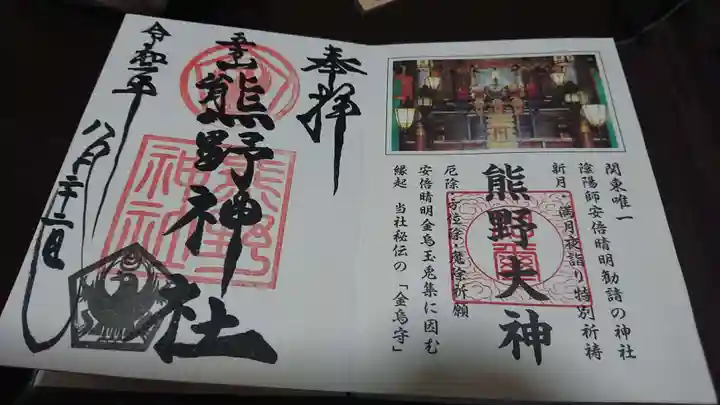 関東唯一
陰陽師安倍晴明勧請の神社
新月・満月夜詣り特別祈祷
熊野大神
厄除・方位除・魔除祈願
安倍晴明金烏玉兎集に因む
縁起 当社秘伝の「金烏守」
奉拝
熊野神社
熊野神社
令和二年
八月二十二日